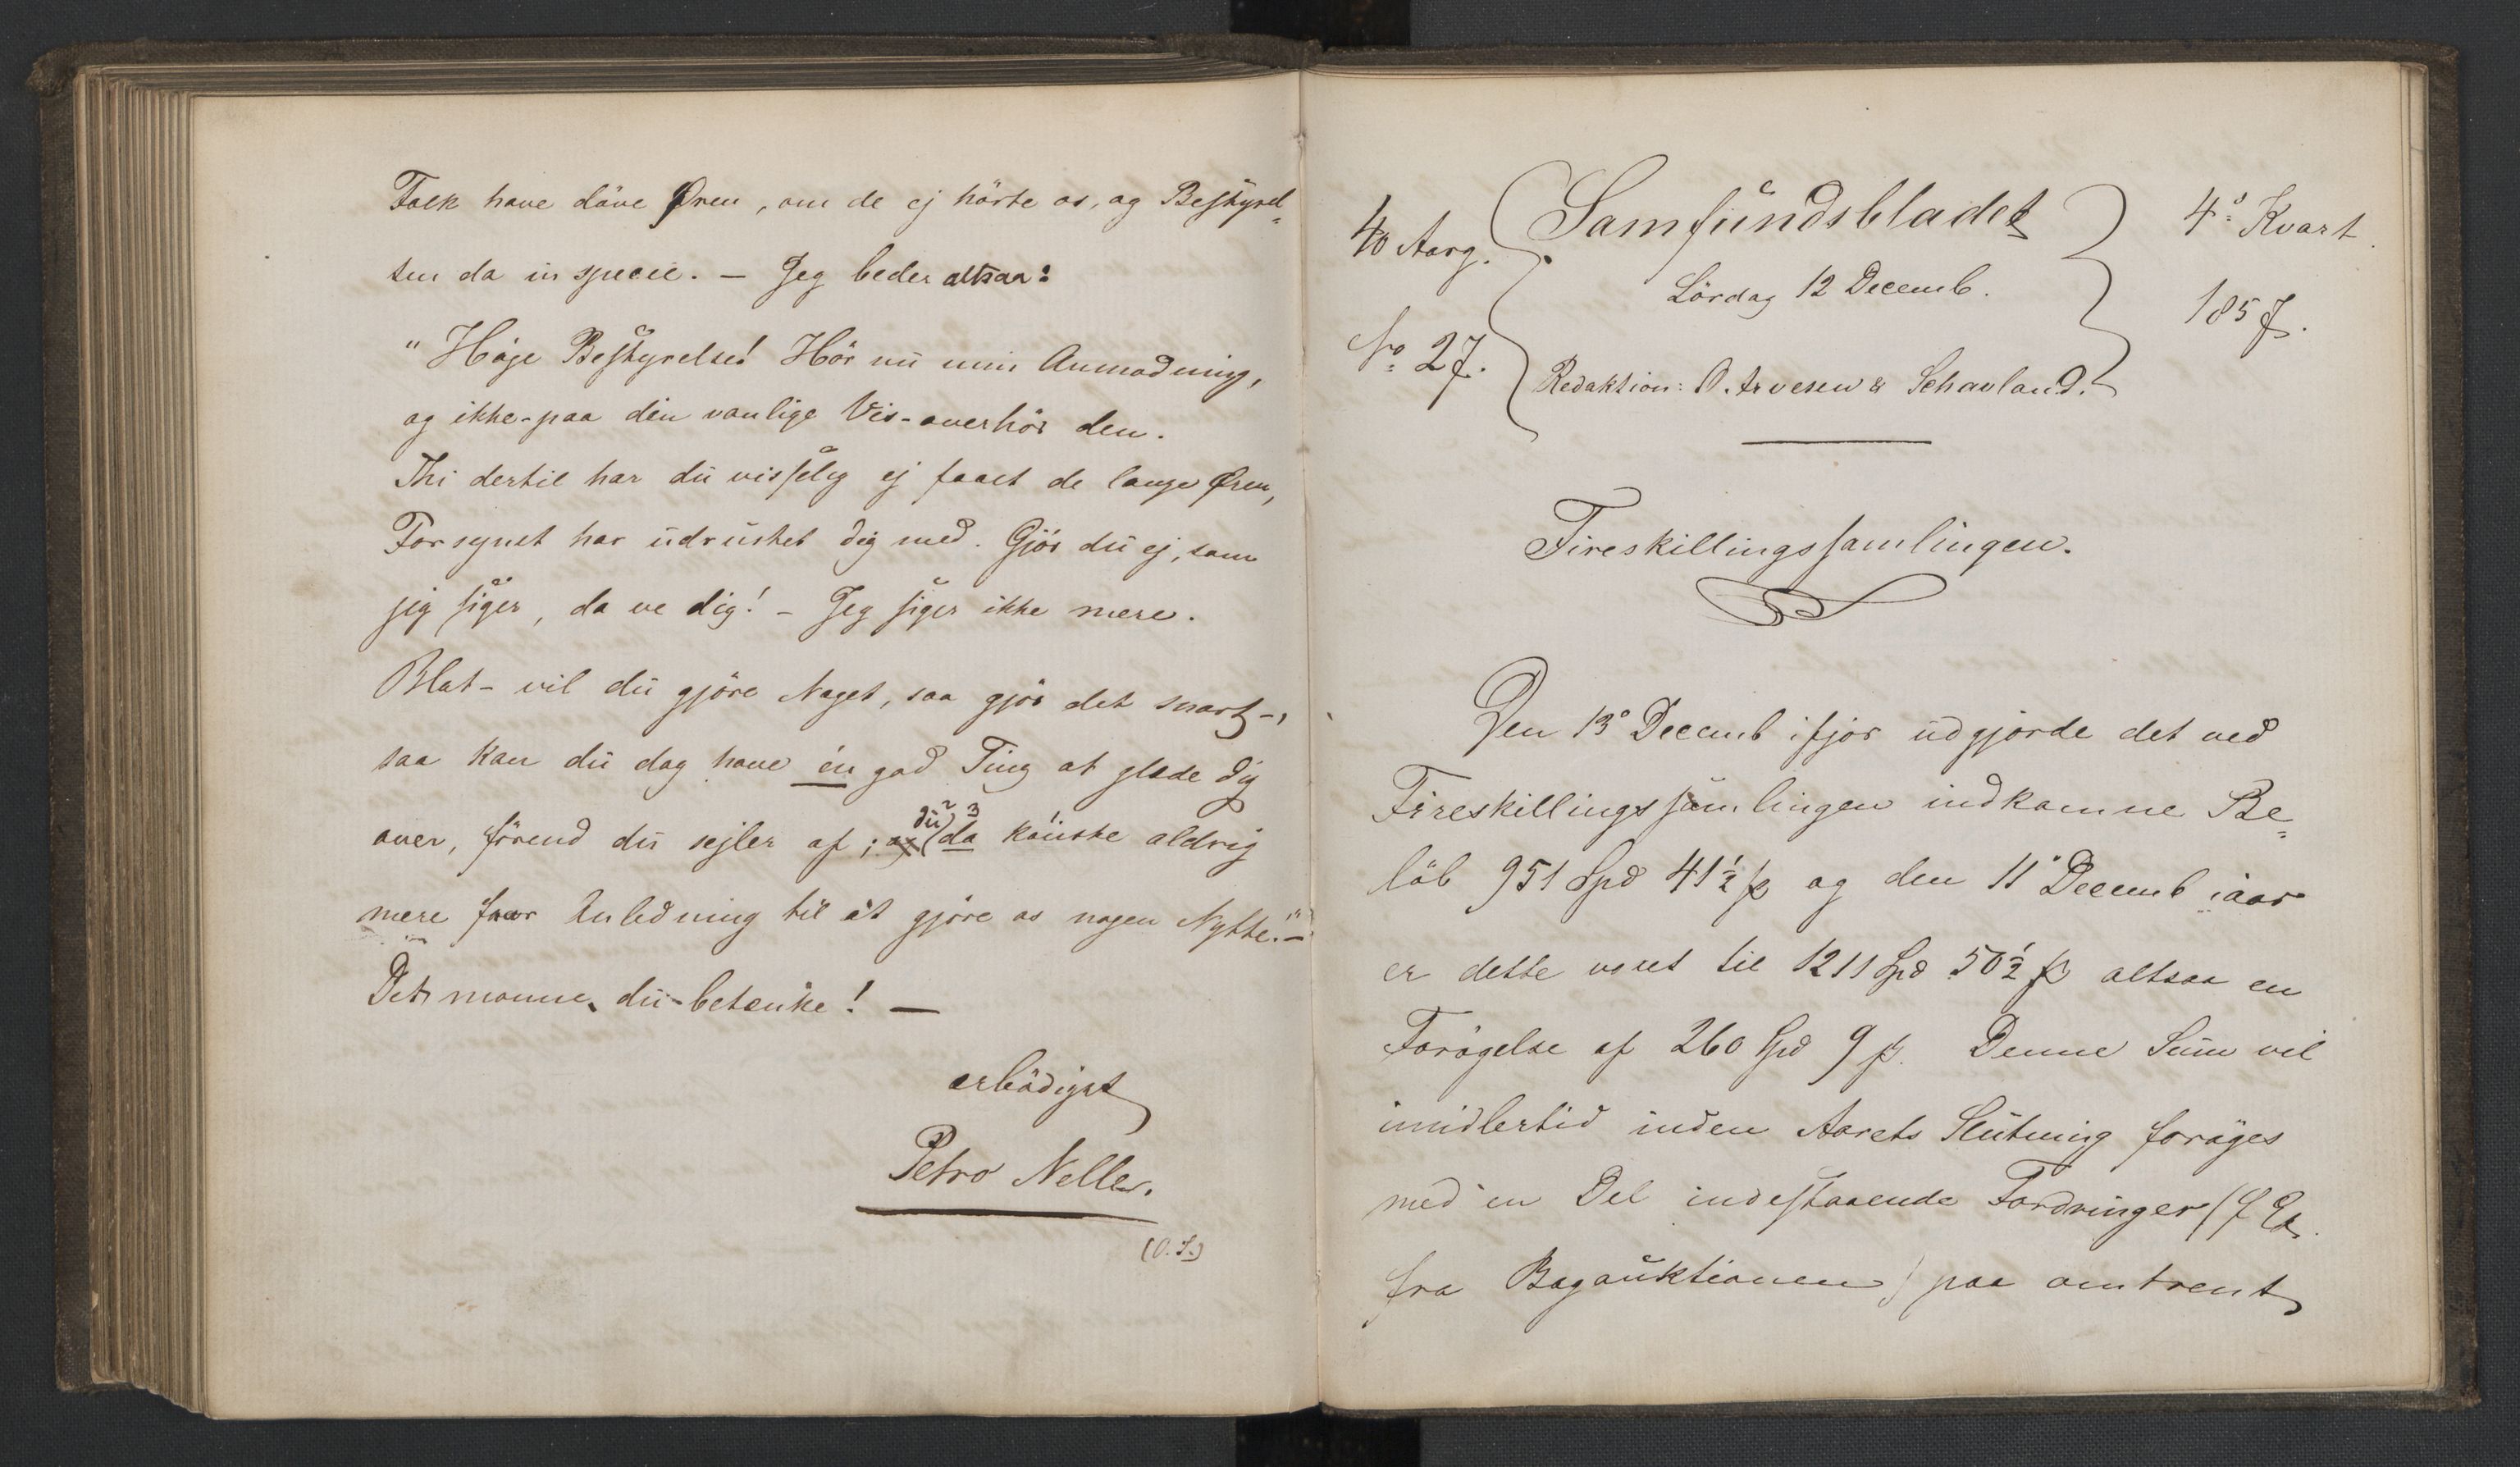 Folk have döve Øren, om de ej hörte os, og Bestyrel-
sen da in specie. — Jeg beder altsaa:
"Höje Bestyrelse! Hör nu min Anmodning,
og ikke - paa din vanlige Vis - overhör den.
Thi dertil har du visselig ej faaet de lange Øren,
Forsynet har udrustet dig med. Gjör du ej, som
jeg siger, da ve dig! — Jeg siger ikke mere.
Blot - vil du gjöre Noget, saa gjör det snart -,
saa kan du dog have én god Ting at glæde dig
over, förend du sejler af; du da kanske aldrig
mere faar Anledning til at gjöre os nogen Nytte." —
Det monne du - betænke! —
ærbödigst
Petro Neller.
(O. S.)
4o Aarg.
Samfundsbladet
4o Kvart.
Lördag 12 Decemb.
No 27.
1857.
Redaktion: O. Arvesen & Schavland.
Fireskillingssamlingen.
Den 13o Decemb ifjor udgjorde det ved
Fireskillingssamlingen indkomne Be-
löb 951 Spd 41½ ß og den 11o Decemb iaar
er dette voxet til 1211 Spd 50½ ß altsaa en
Forögelse af 260 Spd 9 ß. Denne Sum vil
imidlertid inden Aarets Slutning foröges
med en Del indestaaende Fordringer (f Ex.
fra Bogauktionen) paa omtrent